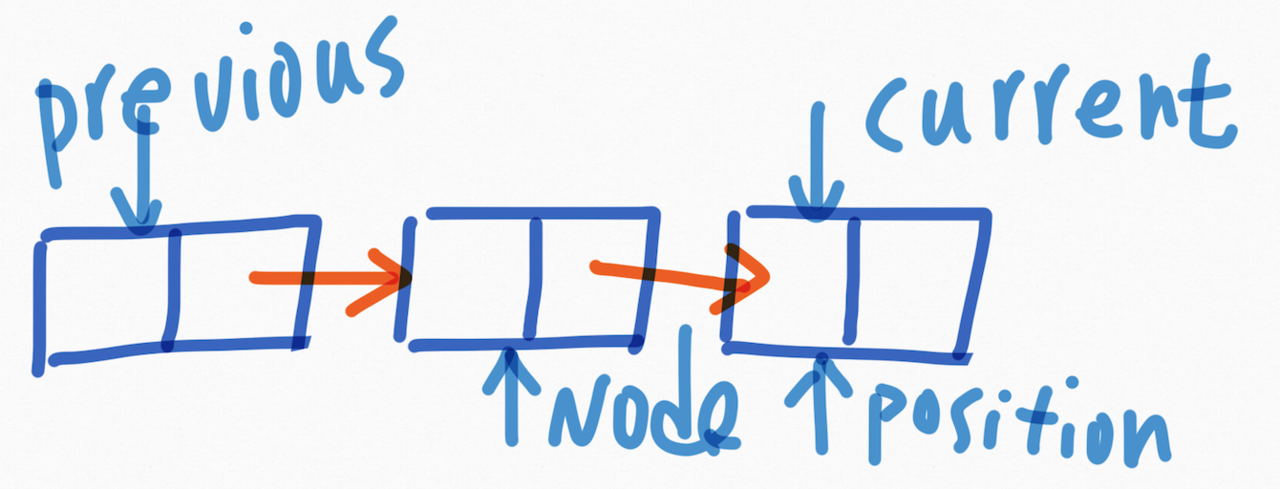 previous
current
Node
position